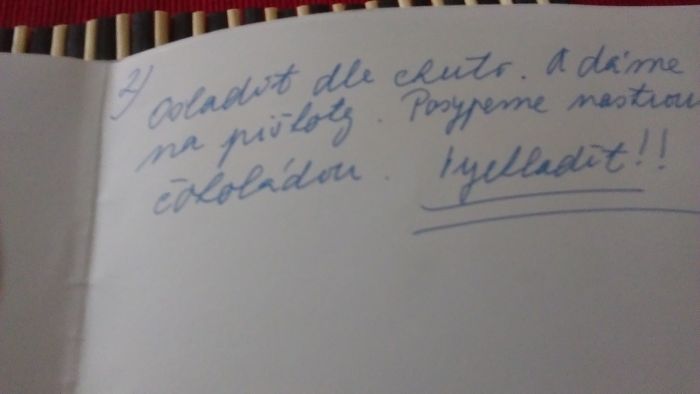 2) Osladit dle chuti. A dáme
na piškoty. Posypeme nastrou
čokoládou. Vychladit!!